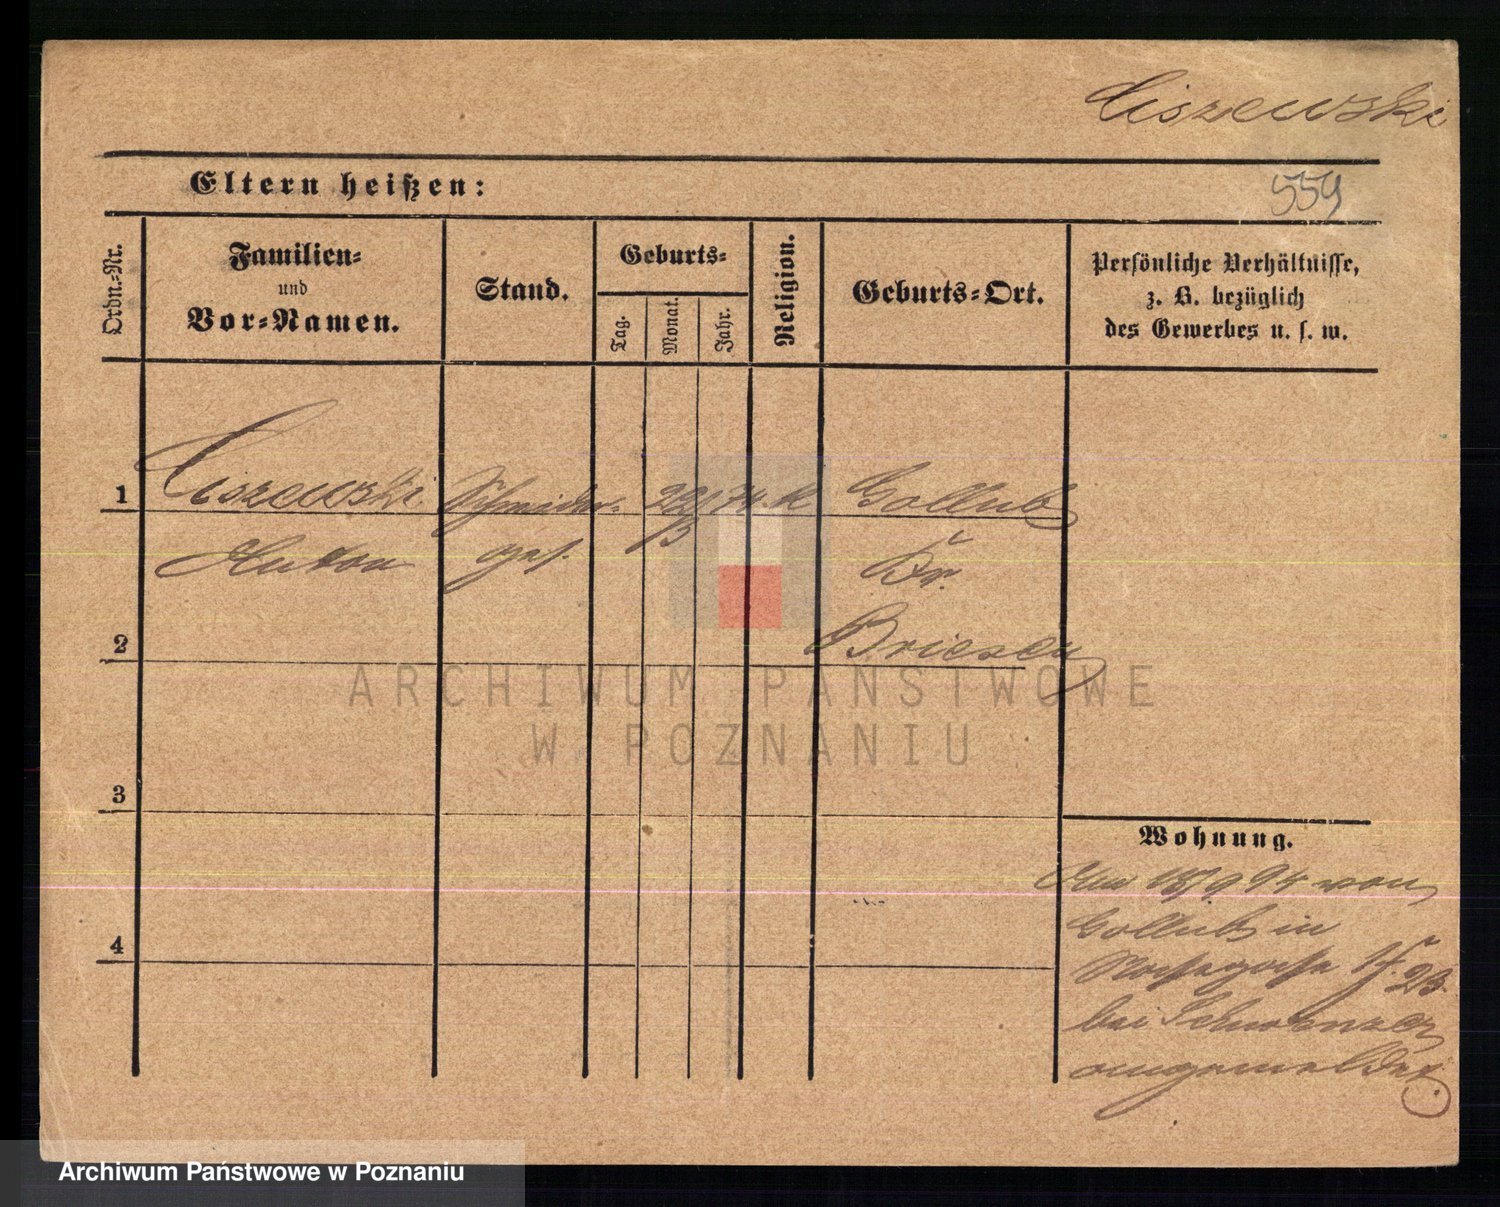 Ciszewski
Eltern heißen:
559
Ordn.-Nr.
Familien-
und
Vor-Namen.
Stand.
Geburts-
Tag.
Monat.
Jahr.
Religion.
Geburts-Ort.
Persönliche Verhältnisse,
z. B. bezüglich
des Gewerbes u. s. w.
1
Ciszewski Schneider- 22/ 74. K Gollub
Anton ges. 3 Kr.
2
Briesen
ARCHIWUM PAŃSTWOWE
W POZNANIU
3
Wohnung.
4
Am 18/9 94 von
Gollub in
23.
bei
angemeldet.
Archiwum Państwowe w Poznaniu